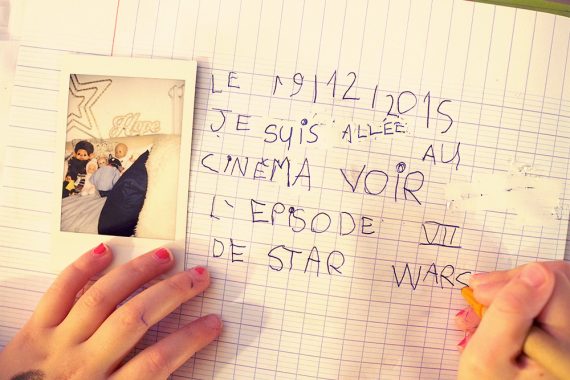 Hope
LE 19/12/2015
JE SUIS ALLÉE AU
CINÉMA VOIR
L'EPISODE VII
DE STAR WARS